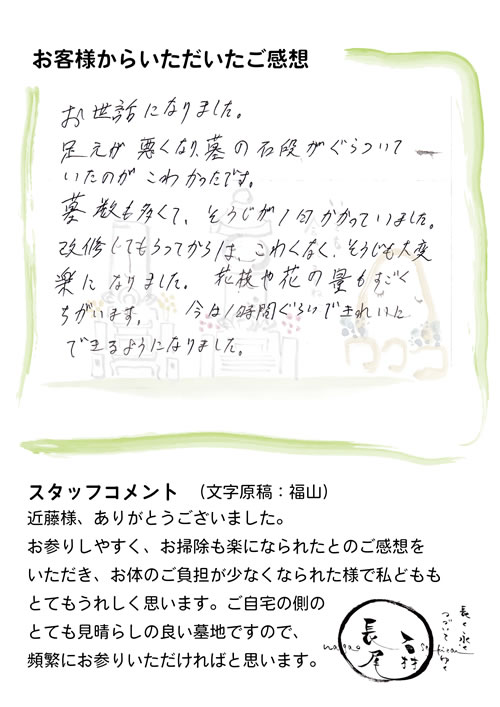 お客様からいただいたご感想
お世話になりました。
足元が悪くなり、墓の石段がぐらついて
いたのがこわかったです。
墓数も多くて、そうじが1日かかっていました。
改修してもらってからは、こわくなく、そうじも大変
楽になりました。 花枝や花の量もすごく
ちがいます。 今は1時間ぐらいできれいに
できるようになりました。
スタッフコメント （文字原稿：福山）
近藤様、ありがとうございました。
お参りしやすく、お掃除も楽になられたとのご感想を
いただき、お体のご負担が少なくなられた様で私どもも
とてもうれしく思います。ご自宅の側の
とても見晴らしの良い墓地ですので、
頻繁にお参りいただければと思います。
長尾
nagao